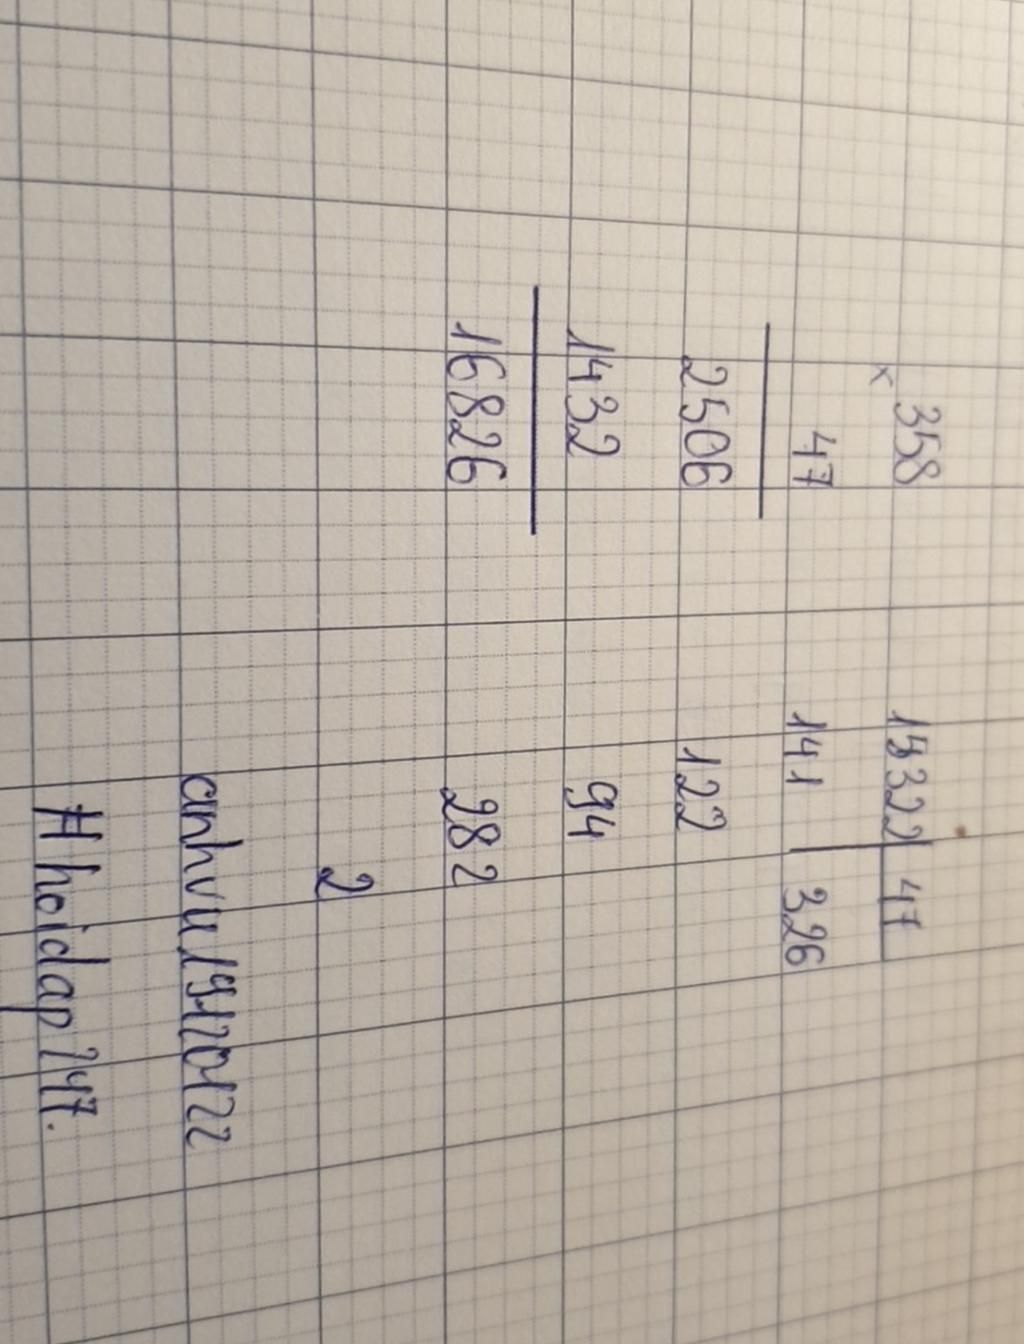 x 358
47
2506
1432
16826
15322 47
141 326
122
94
282
2
#hoidap247.